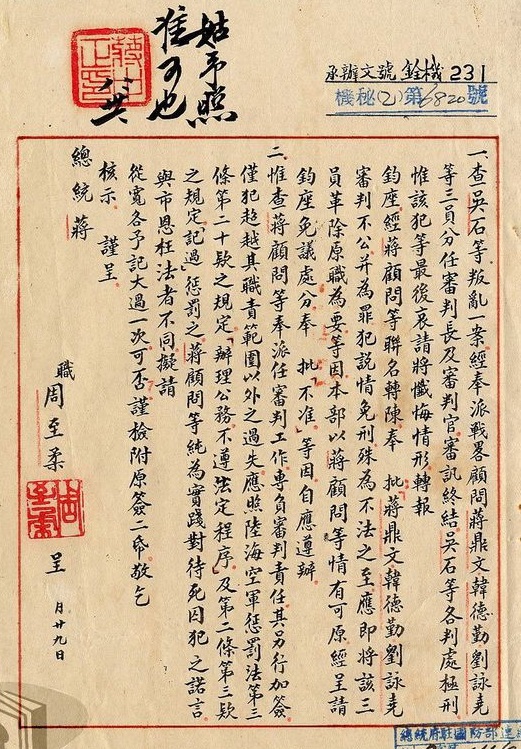 承辦文號 銓機 231
機秘(乙)第6820號
姑予照
准可也
蔣中正印
一、查吳石等叛亂一案經奉 派戰畧顧問蔣鼎文韓德勤劉詠堯
等三員分任審判長及審判官審訊終結吳石等各判處極刑
惟該犯等最後哀請將懺悔情形轉報
鈞座經蔣顧問等聯名轉陳奉 批蔣鼎文韓德勤劉詠堯
審判不公并為罪犯說情免刑殊為不法之至應即將該三
員革除原職為要等因本部以蔣顧問等情有可原經呈請
鈞座免議處分奉 批「不准」等因自應遵辦
二、惟查蔣顧問等奉派任審判工作專負審判責任其另行加簽
僅犯超越其職責範圍以外之過失應照陸海空軍懲罰法第三
條第二十款之規定「辦理公務不遵法定程序」及第二條第三款
之規定「記過」懲罰之蔣顧問等純為實踐對待死囚犯之諾言
與市恩枉法者不同擬請
從寬各予記大過一次可否謹檢附原簽二帋敬乞
核示 謹呈
總統蔣
職 周至柔 呈
周至柔
月廿九日
總統府駐國防部連